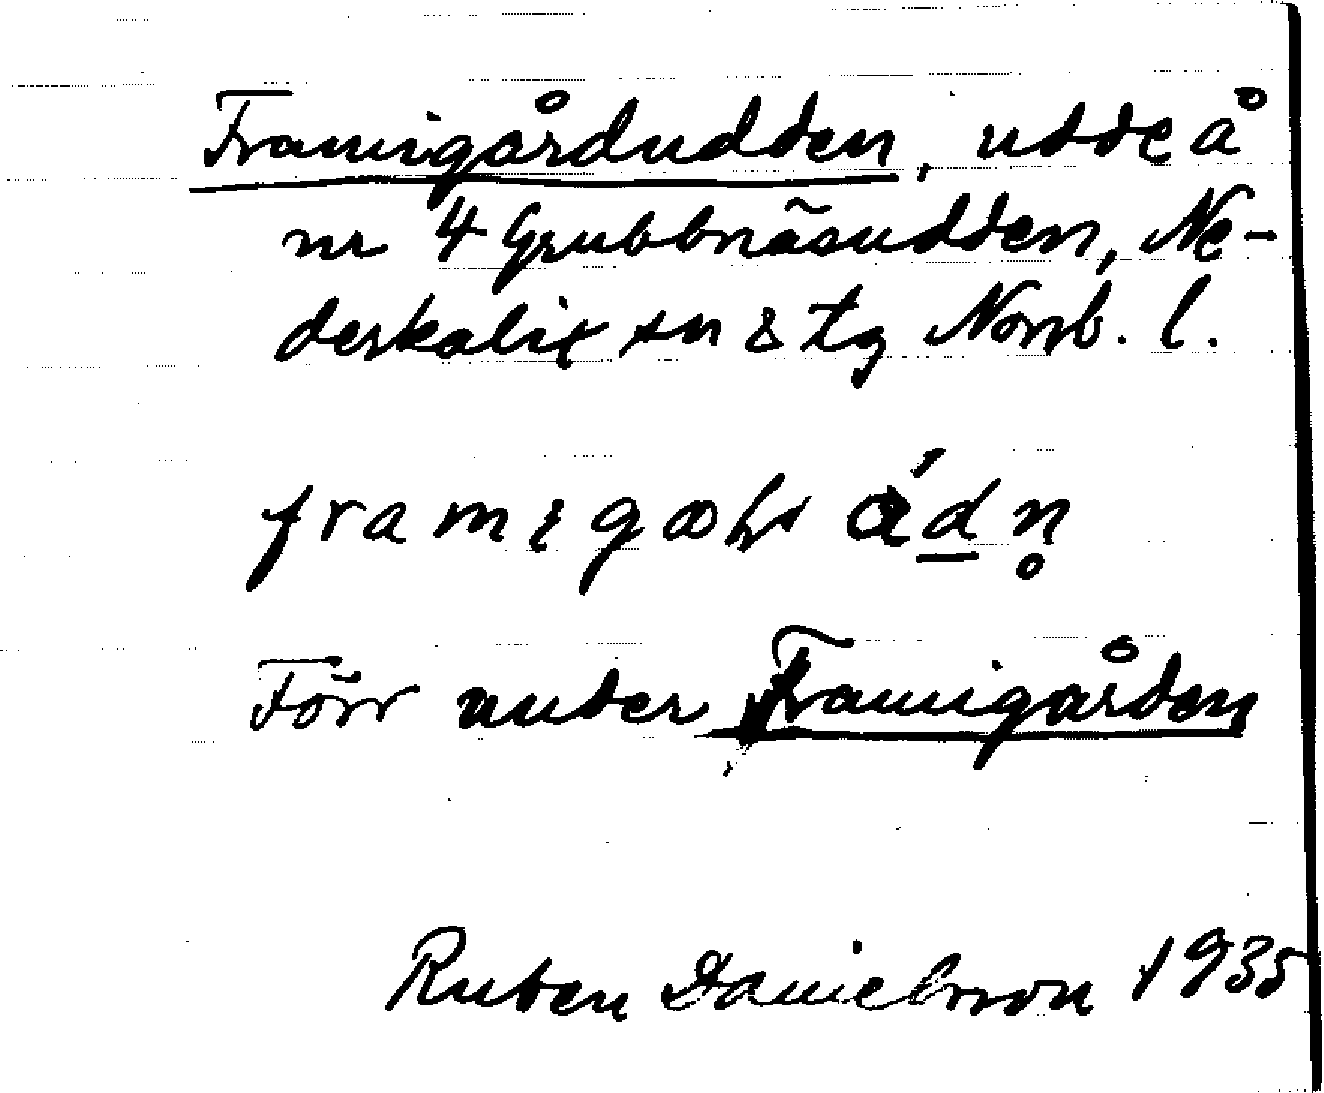 Framigårdudden, udde å
nr 4 Grubbnäsudden, Ne-
derkalix sn & tg Norrb. l.
Förr under Framigården
Ruben Danielsson 1935